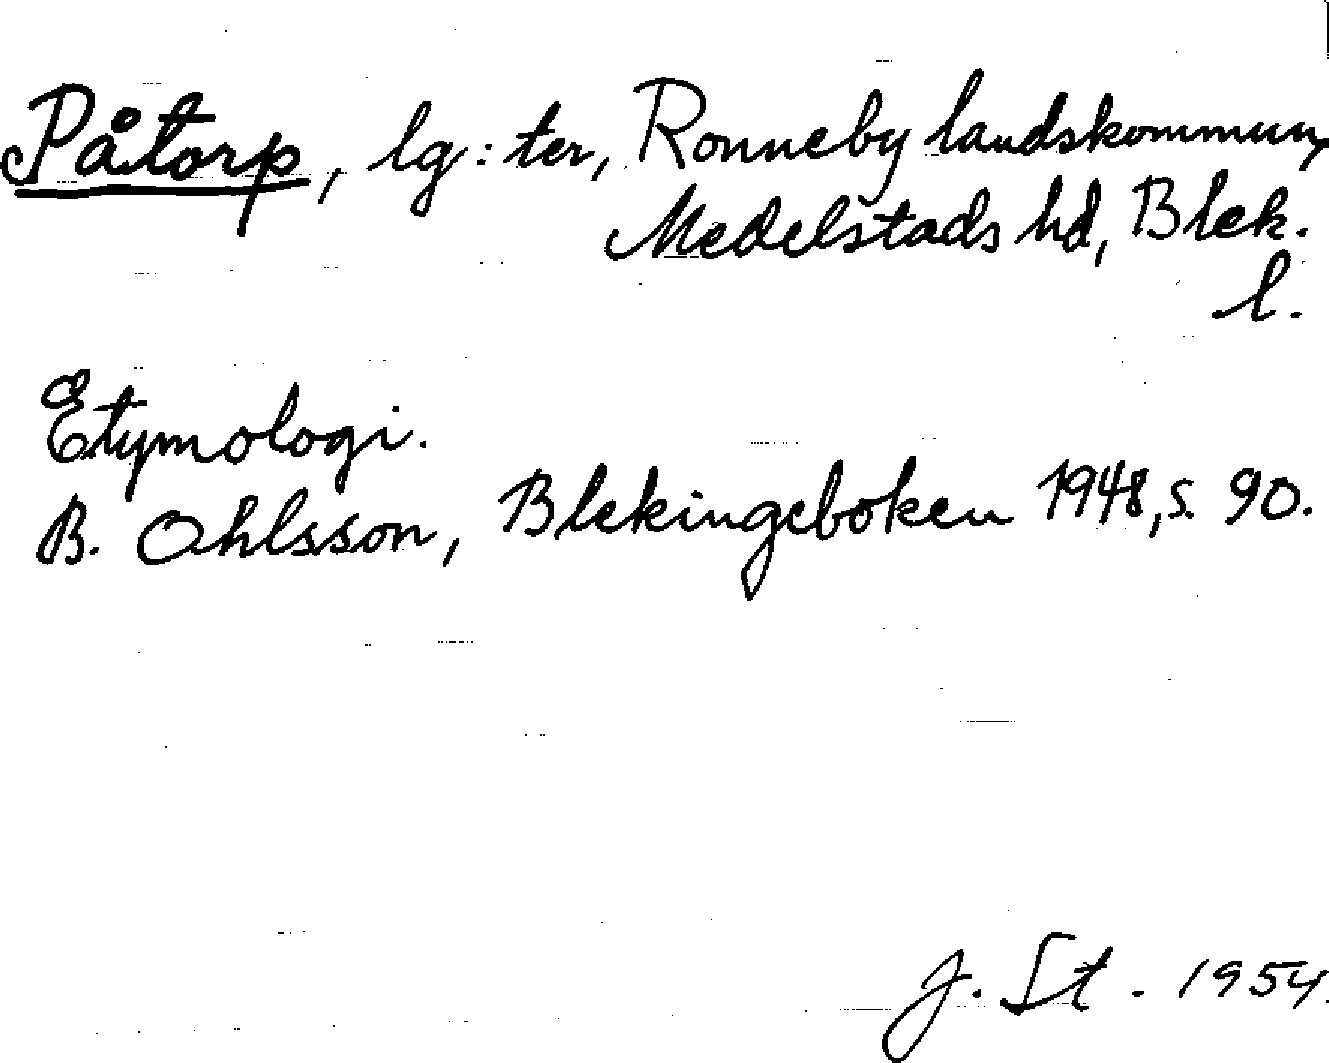 Påtorp, lg:ter, Ronneby landskommun,
Medelstads hd, Blek.
l.
Etymologi.
B. Ohlsson, Blekingeboken 1948, s. 90.
J. St. 1954.